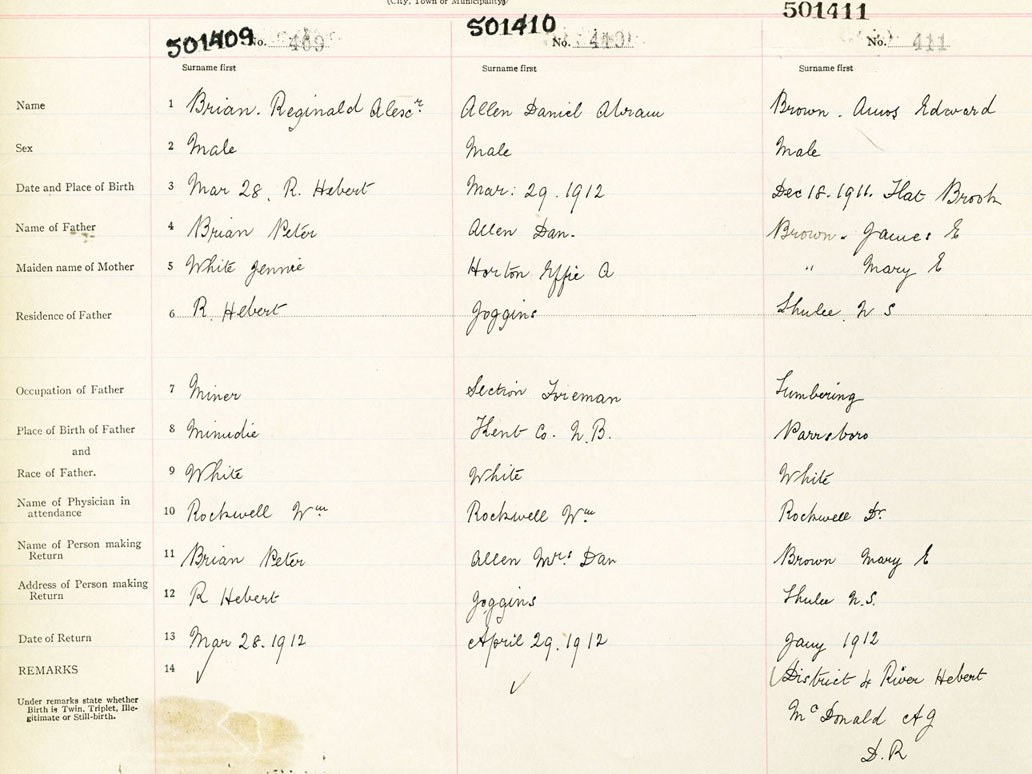 (City, Town or Municipality)
501409 No. 409 501410 No. 410 501411 No. 411
Surname first Surname first Surname first
Name 1 Brian. Reginald Alexr Allen Daniel Abram Brown. Amos Edward
Sex 2 Male Male Male
Date and Place of Birth 3 Mar 28, R. Hebert Mar: 29. 1912 Dec 18. 1911. Flat Brook
Name of Father 4 Brian Peter Allen Dan. Brown. James E
Maiden name of Mother 5 White Jennie Horton Effie A " Mary E
Residence of Father 6 R. Hebert Joggins Shulee. N S
Occupation of Father 7 Miner Section Foreman Lumbering
Place of Birth of Father 8 Minudie Kent Co. N.B. Parrsboro
and
Race of Father. 9 White White White
Name of Physician in
attendance 10 Rockwell Wm Rockwell Wm Rockwell Dr.
Name of Person making
Return 11 Brian Peter Allen Mrs. Dan Brown Mary E
Address of Person making
Return 12 R Hebert Joggins Shulee N.S.
Date of Return 13 Mar 28. 1912 April 29. 1912 Jany 1912
REMARKS 14 ✓ ✓ ✓ District 4 River Hebert
Under remarks state whether
Birth is Twin, Triplet, Ille-
gitimate or Still-birth.
McDonald A G
D. R